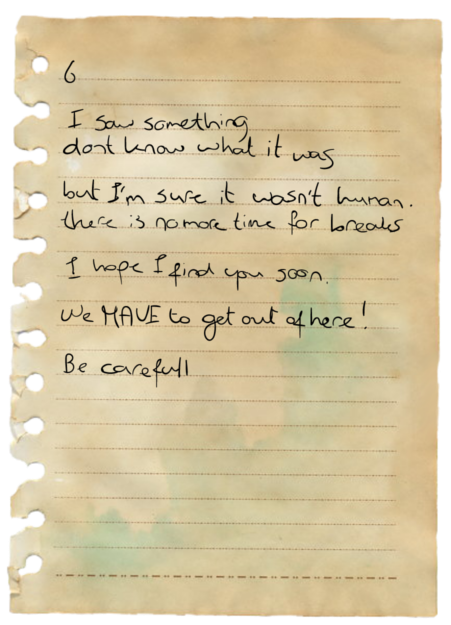 6
I saw something
dont know what it was
but I'm sure it wasn't human.
there is no more time for breaks
I hope I find you soon.
We HAVE to get out of here!
Be carefull